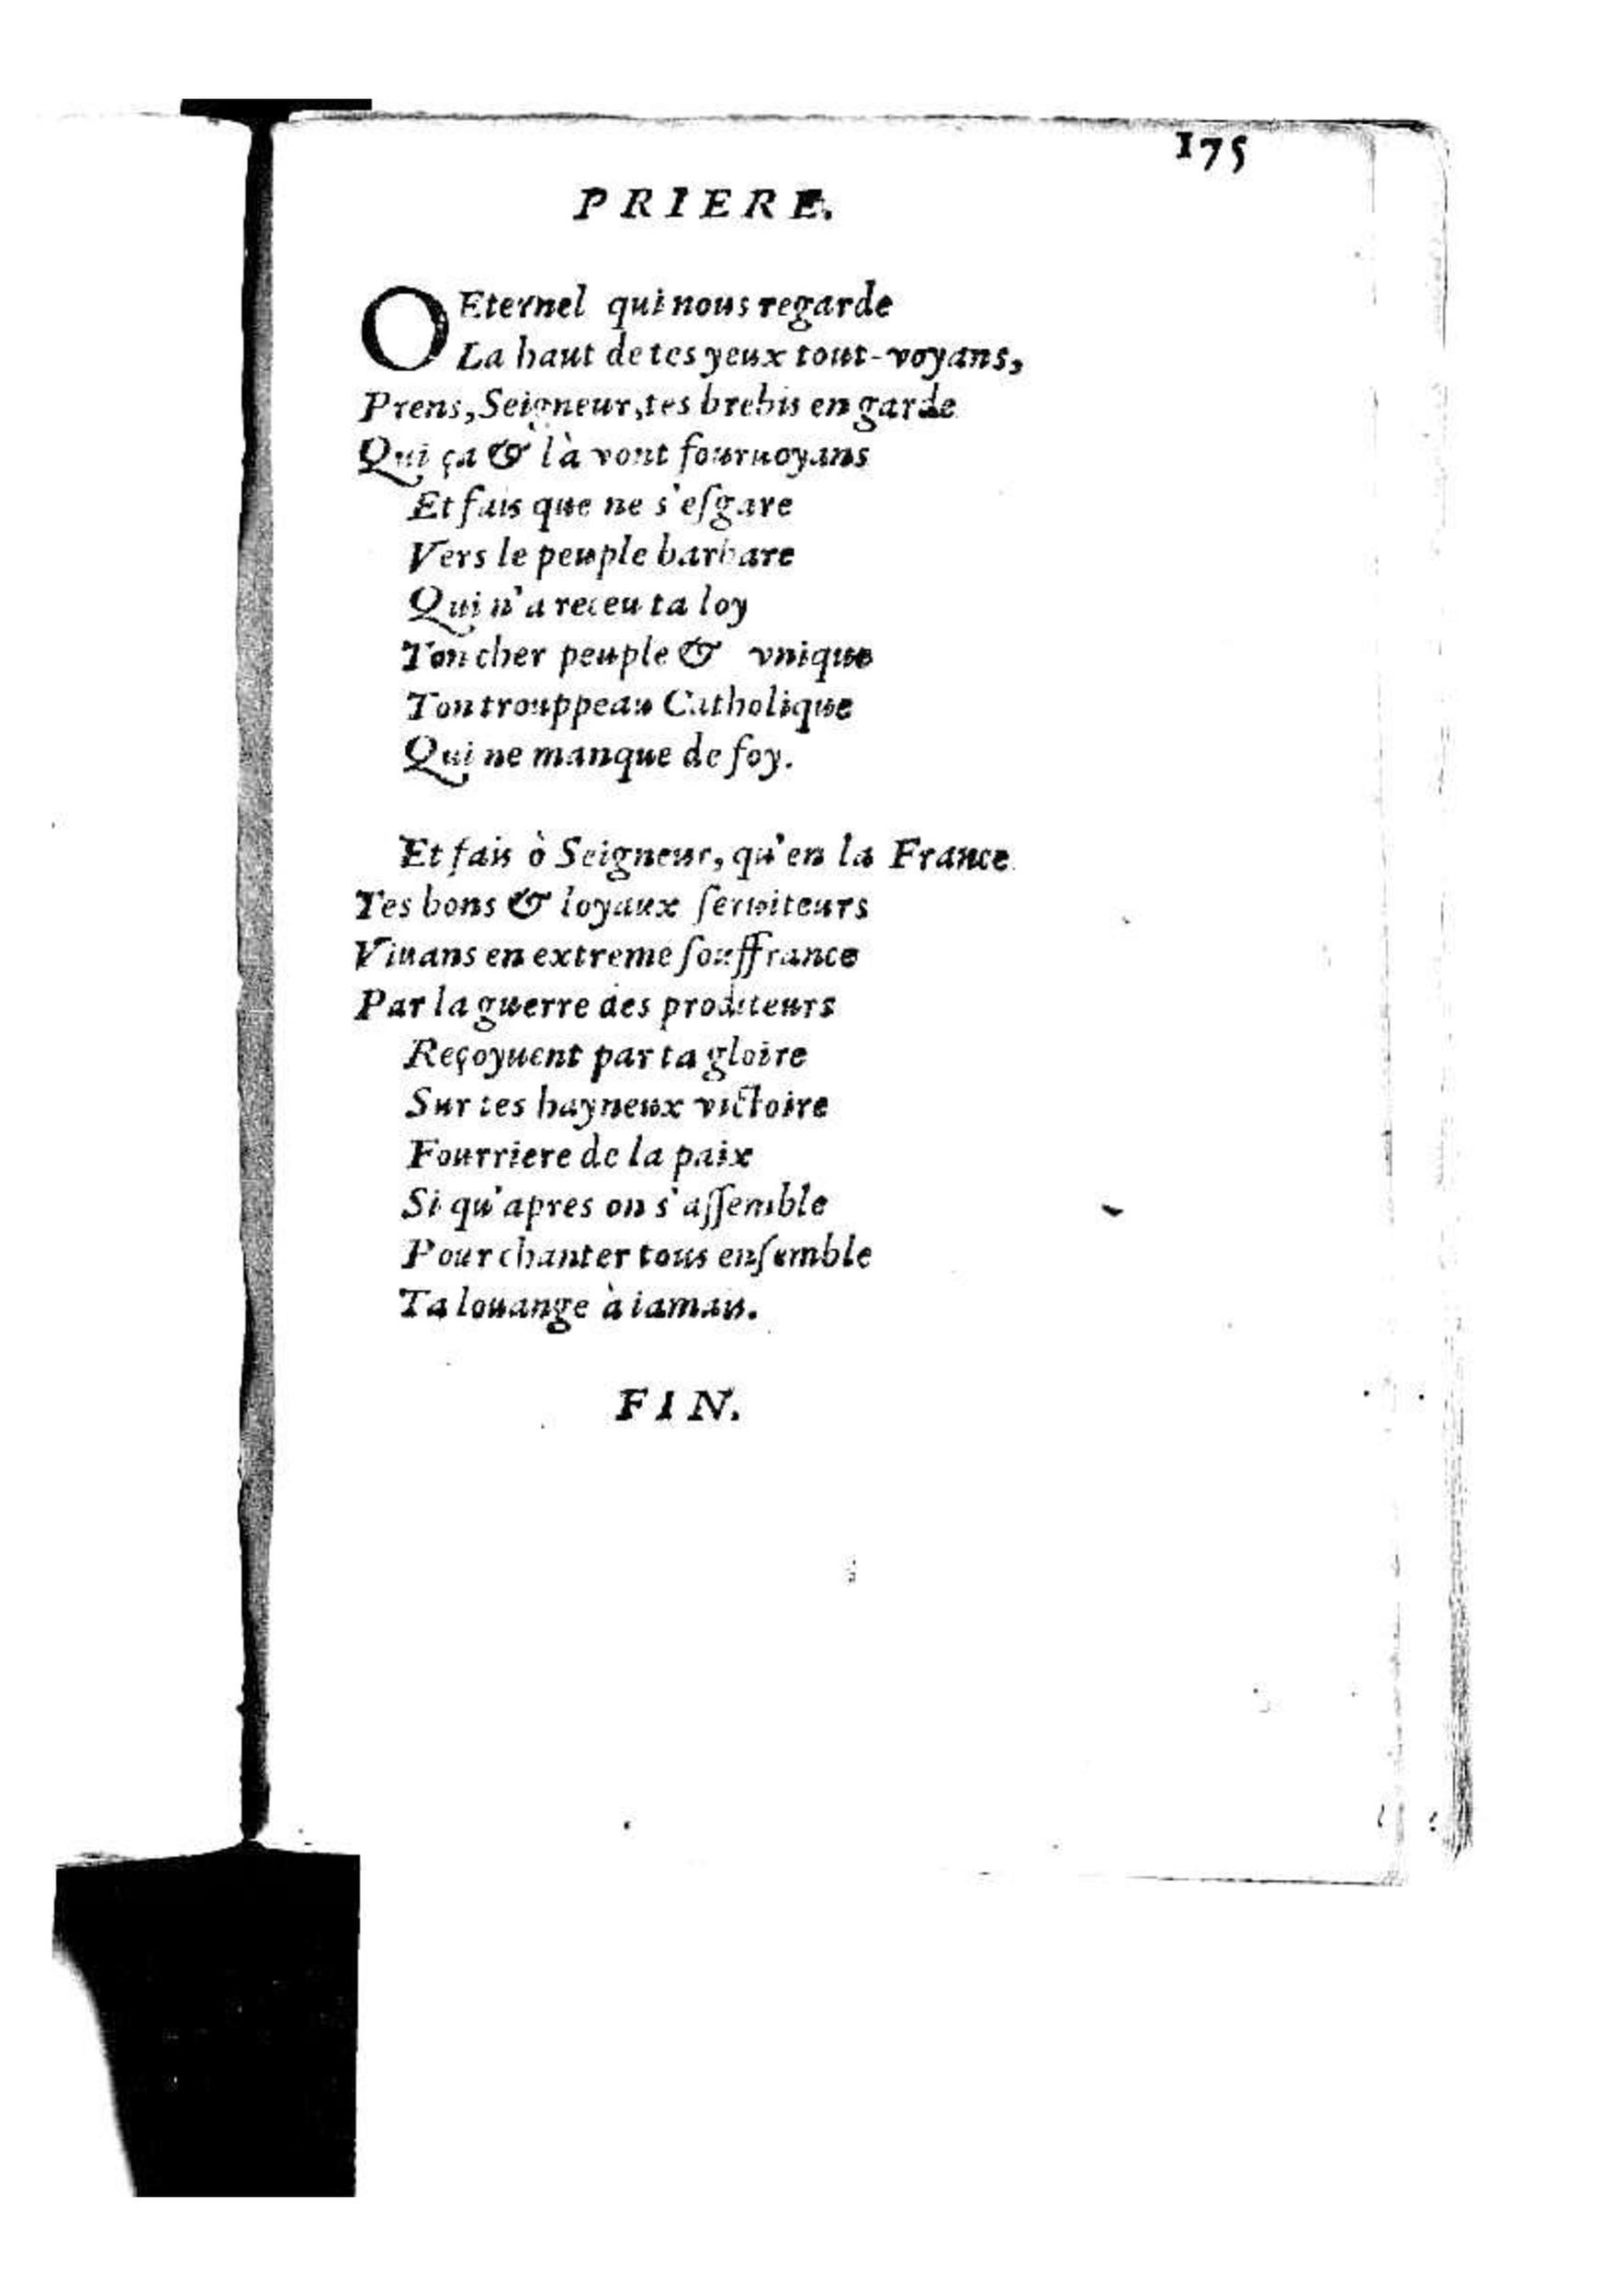 175
PRIERE.
O Eternel qui nous regarde
La haut de tes yeux tout-voyans,
Prens, Seigneur, tes brebis en garde
Qui ça & là vont fouruoyans
Et fais que ne s'eſgare
Vers le peuple barbare
Qui n'a receu ta loy
Ton cher peuple & vnique
Ton trouppeau Catholique
Qui ne manque de foy.
Et fais ò Seigneur, qu'en la France
Tes bons & loyaux ſeruiteurs
Viuans en extreme ſouffrance
Par la guerre des proditeurs
Reçoyuent par ta gloire
Sur tes hayneux victoire
Fourriere de la paix
Si qu'apres on s'aſſemble
Pour chanter tous enſemble
Ta louange à iamais.
FIN.